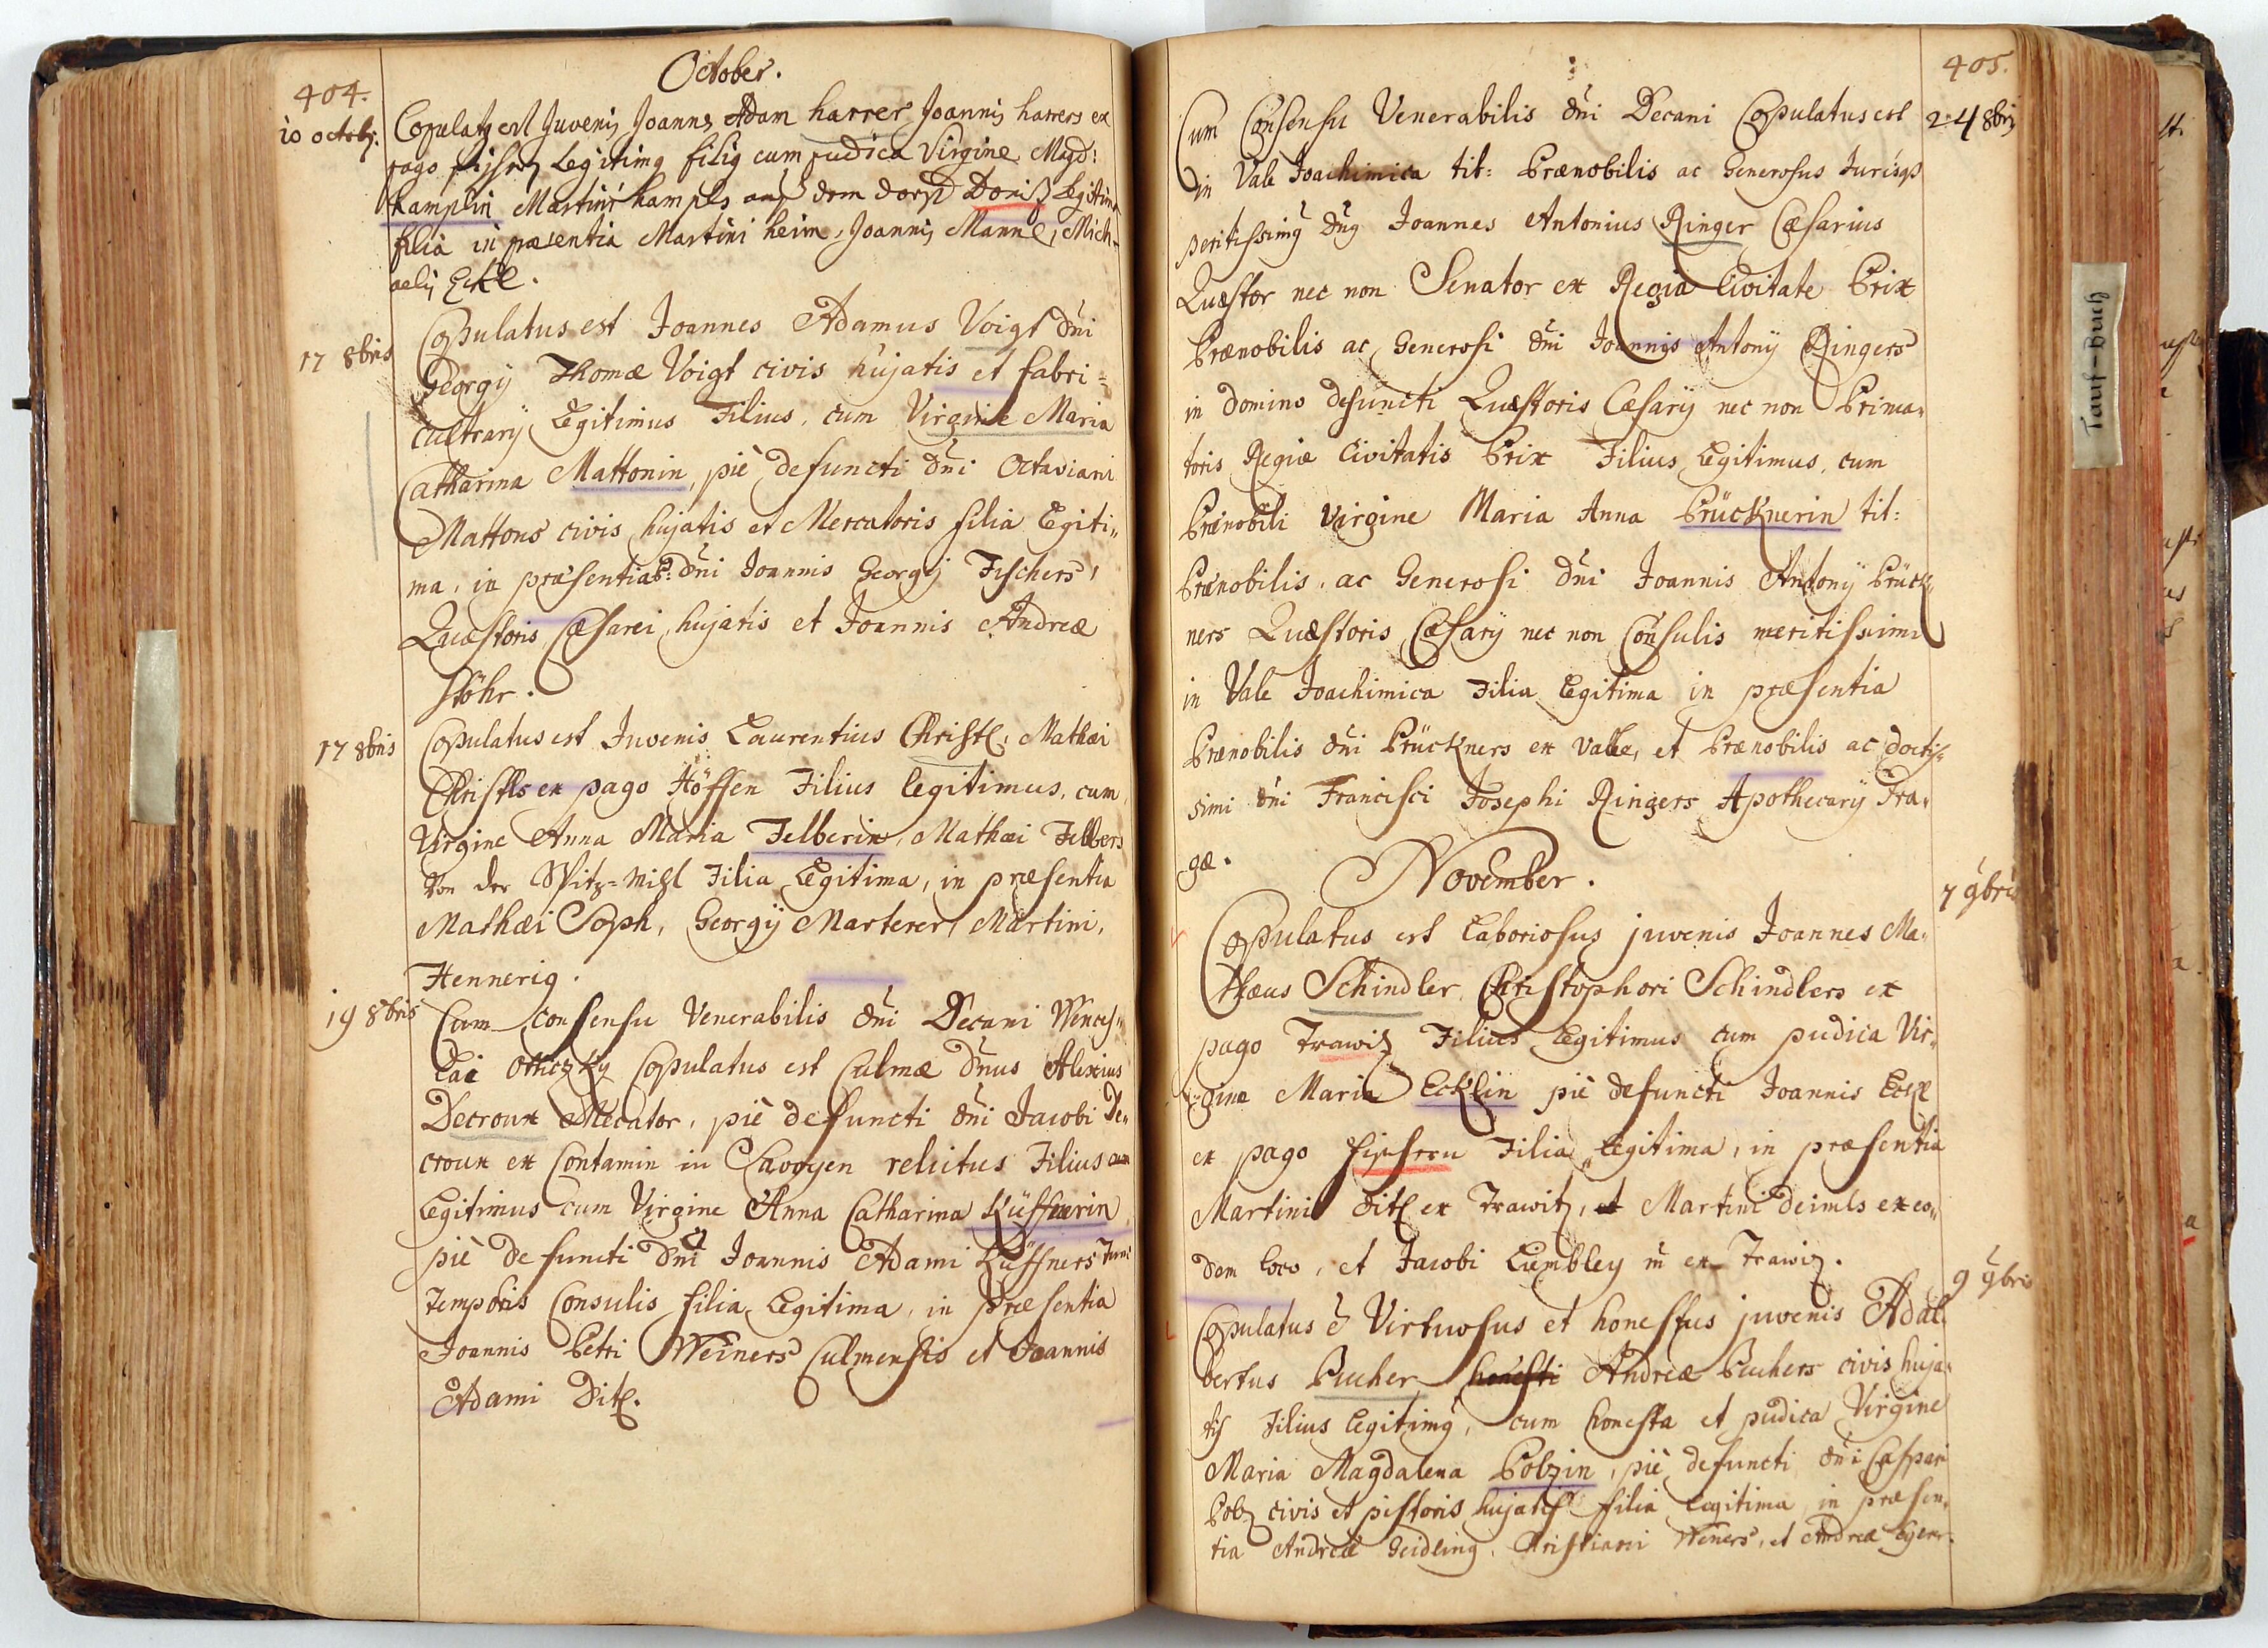 404.
October.
10 octobr.
Copulatq est Juvenis Joannes Adam harrer Joannis harrers ex
pago fischern Legitimq filiq cum pudica Virgine Magd:
hamplin Martini hampls auß dem dorff Doniz Legitima
filia in præsentia Martini heim, Joannis Mannl, Mich-
aelis Eckl.
17 8bris
Copulatus est Joannes Adamus Voigt dni
Georgÿ Thomæ Voigt civis hujatis et fabri=
cultrarÿ Legitimus Filius, cum Virgine Maria
Catharina Mattonin, piè defuncti dni Octaviani
Mattons civis hujatis et Mercatoris filia Legiti„
ma, in præsentia P: dni Joannis Georgÿ Fischers,
Quæstoris Cæsarei hujatis et Joannis Andreæ
Stöhr.
17 8bris
Copulatus est Juvenis Laurentius Christl, Mathæi
Christls ex pago Höffen Filius legitimus, cum
Virgine Anna Maria Felberin, Mathæi Felbers
von der Spitz=Mihl Filia Legitima, in præsentia
Mathæi Soph, Georgÿ Marterer, Martini,
Hennerig.
19 8bris
Cum consensu Venerabilis dni Decani Wences„
Lai Copulatus est Culmæ dnus Alexius
Decroux Mecator, piè defuncti dni Jacobi De„
croux ex Contamin in Savoyen relictus Filius
Legitimus cum Virgine Anna Catharina Küffnerin
piè defuncti dni Joannis Adami Küffners Tunc
Temporis Consulis filia Legitima, in præsentia
Joannis Petri Weiners Culmensis et Joannis
Adami Ditl.
405.
24 8bris
Cum Consensu Venerabilis dni Decani Copulatus est
in Vale Joachimica tit: Prænobilis ac Generosus Jurisq
peritissimq dnq Joannes Antonius Ringer Cæsarius
Quæstor nec non Senator ex Regia Civitate Brix
Prænobilis ac Generosi dni Joannis Antonÿ Ringers
in Domino defuncti Quæstoris Cæsarÿ nec non Prima„
toris Regiæ Civitatis Brix Filius Legitimus, cum
Prænobili Virgine Maria Anna Prücknerin tit:
Prænobilis, ac Generosi dni Joannis Antonÿ Prück„
ners Quæstoris Cæsarÿ nec non Consulis meritissimi
in Vale Joachimica Filia Legitima in præsentia
Prænobilis dni Prückners ex Valle, et Prænobilis ac docti„
simi dni Francisci Josephi Ringers Apothecarÿ Pra„
gæ.
November.
7 9bris
Copulatus est Laboriosus juvenis Joannes Ma„
thæus Schindler, Christophori Schindlers ex
pago Trawiz Filius Legitimus cum pudica Vir„
gine Maria Ecklin piè defuncti Joannis Eckl
ex pago fischern Filia Legitima, in præsentia
Martini Ditl ex Trawitz, et Martini deimls ex eo„
dem loco, et Jacobi Lumbley ex Trawiz.
9 9bris
Copulatus ē Virtuosus et honestus juvenis Adal„
bertus Pucher honesti Andreæ Puchers civis huja„
tis Filius Legitimq, cum honesta et pudica Virgine
Maria Magdalena Polzin, piè defuncti dni Caspari
Polz civis et pistoris hujatis filia legitima in præsen„
tia Andreæ Geidling, Christiani Weners, et Andreæ
Tauf-Buch